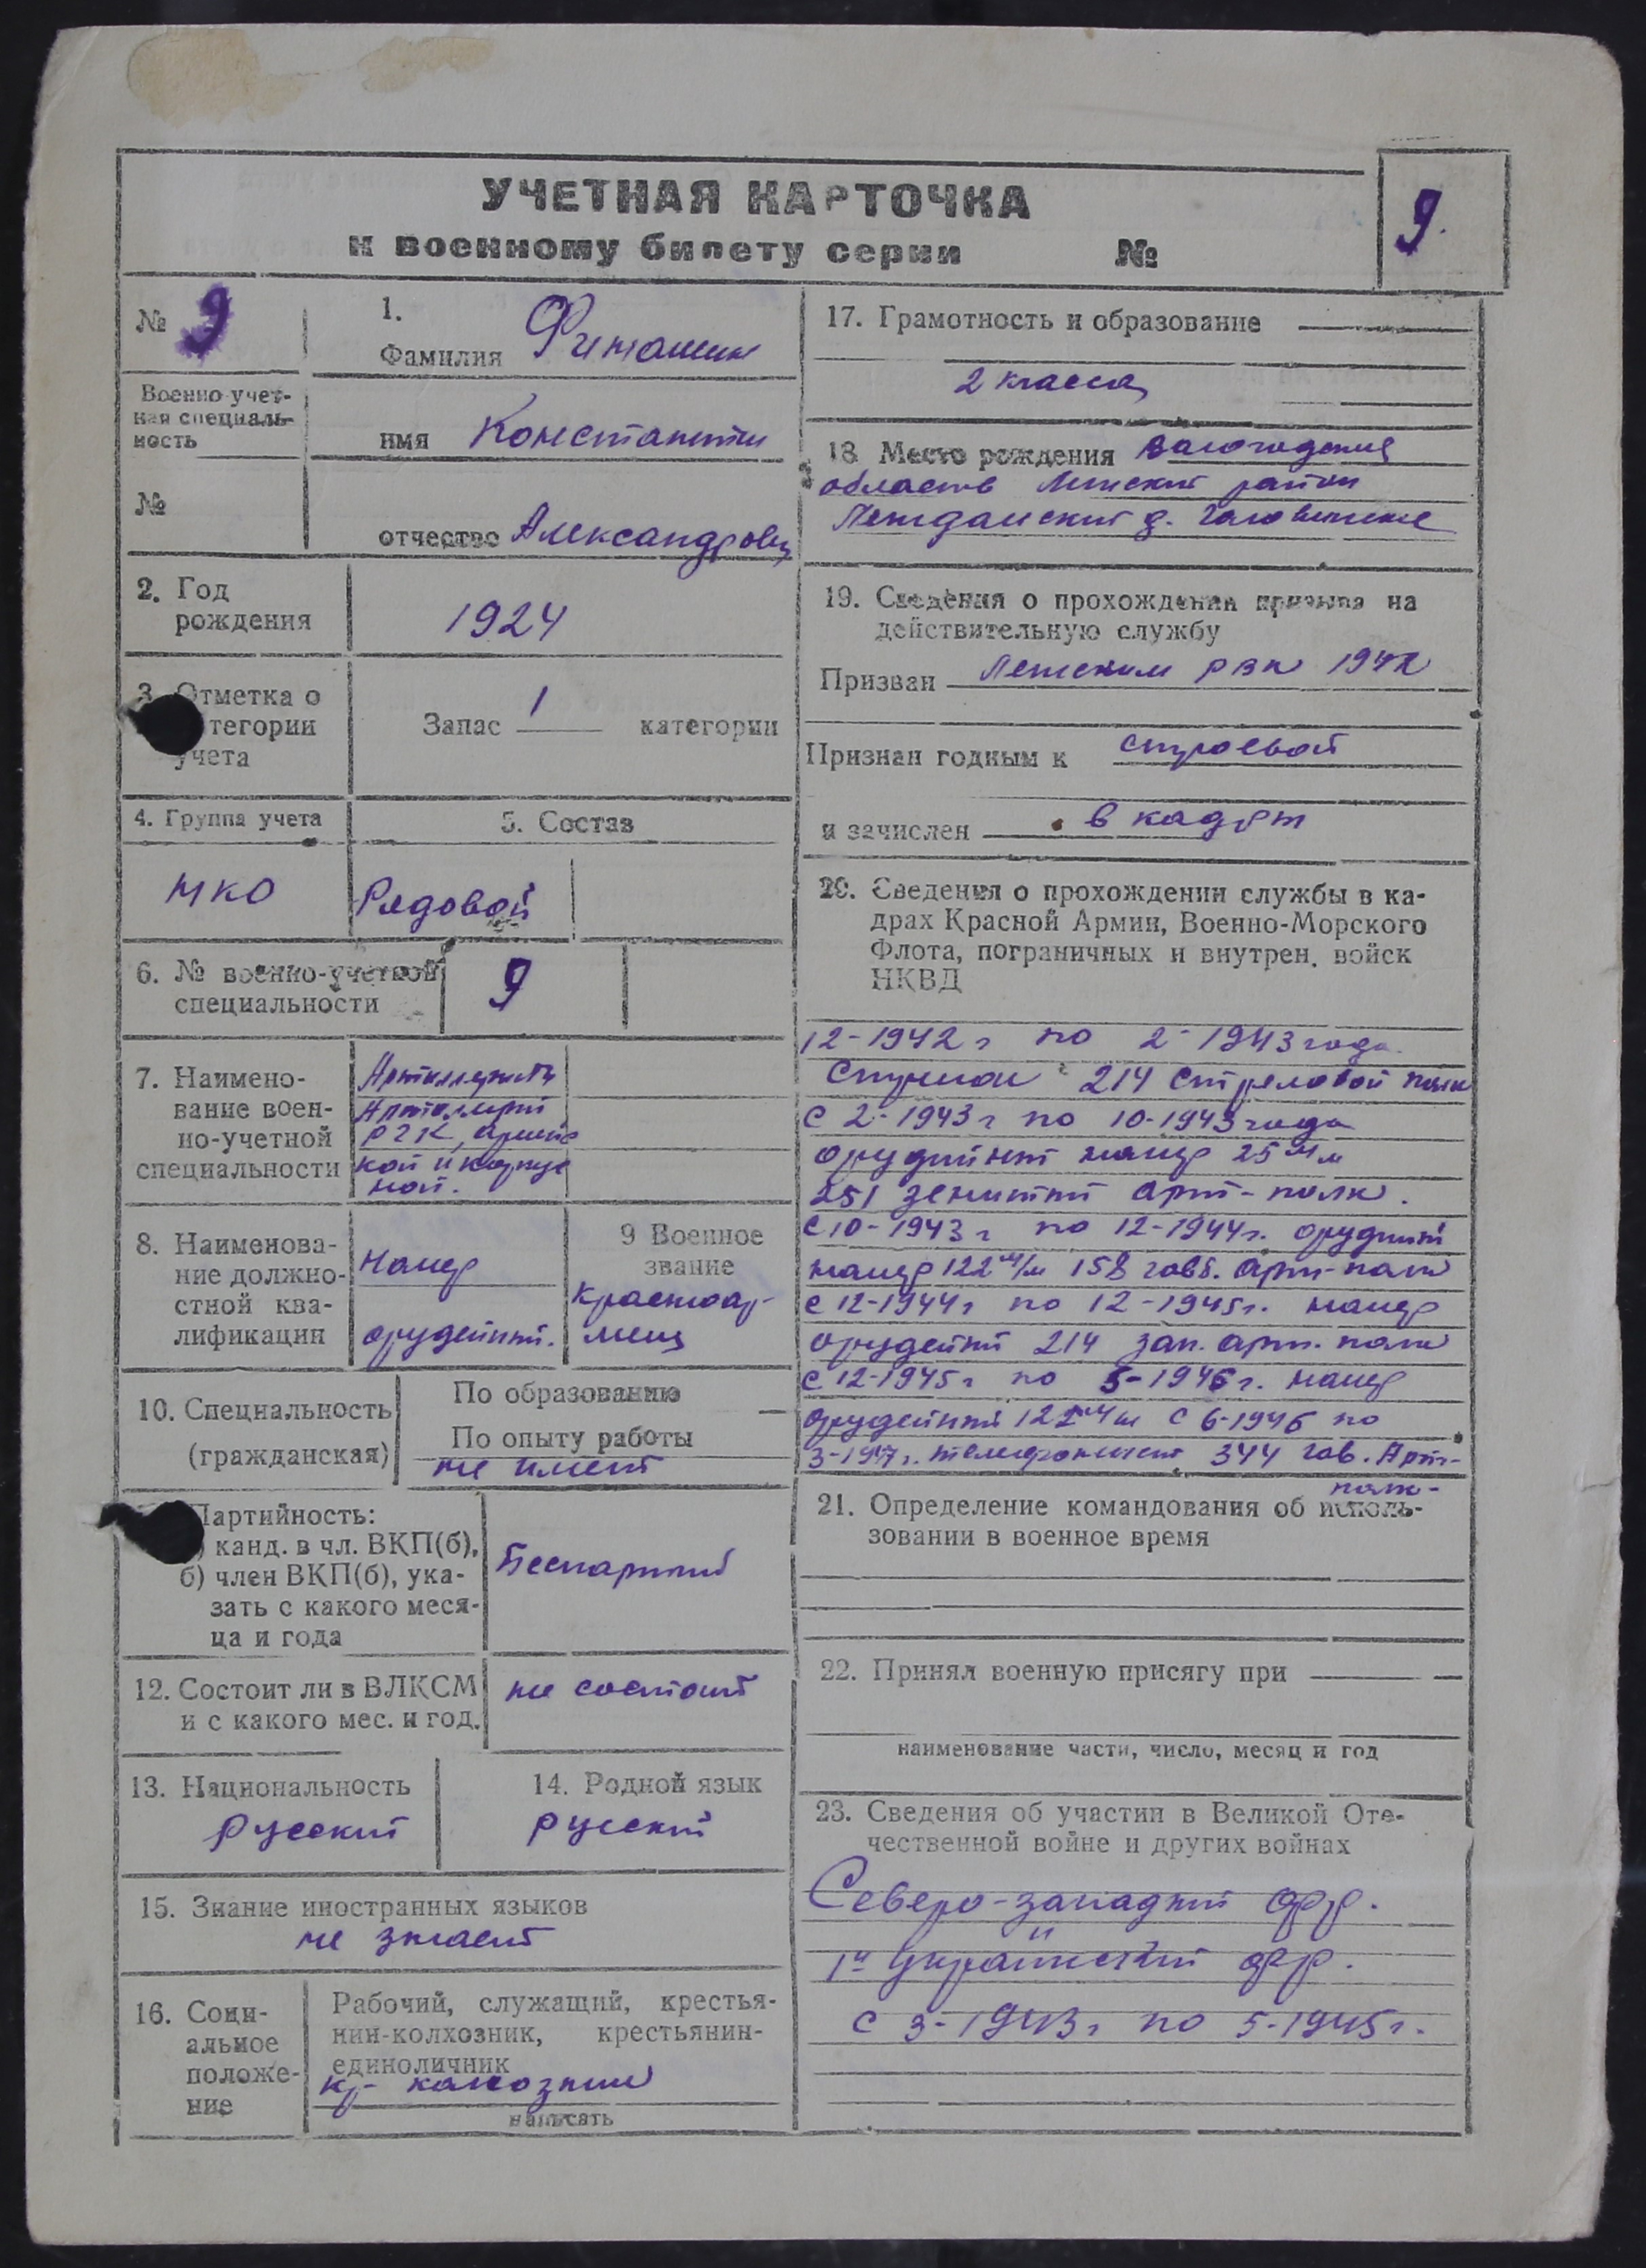 УЧЕТНАЯ КАРТОЧКА
к военному билету серии №
9.
№ 9
1.
Фамилия
имя Константин
отчество Александрович
Военно-учет-
ная специаль-
ность
№
2. Год
рождения
1924
3. Отметка о
тегории
учета
Запас 1 категории
4. Группа учета
НКО
5. Состав
Рядовой
6. № военно-учетной
специальности
9
7. Наимено-
вание воен-
но-учетной
специальности
Артиллерист
Артиллерии
РГК, армейс
кой и корпус
ной.
8. Наименова-
ние должно-
стной ква-
лификации
номер
орудейный.
9 Военное
звание
красноар-
меец
10. Специальность
(гражданская)
По образованию —
По опыту работы
не имеет
Партийность:
) канд. в чл. ВКП(б),
б) член ВКП(б), ука-
зать с какого меся-
ца и года
Беспартий
12. Состоит ли в ВЛКСМ
и с какого мес. и год.
не состоит
13. Национальность
русский
14. Родной язык
русский
15. Знание иностранных языков
не знает
16. Соци-
альное
положе-
ние
Рабочий, служащий, крестья-
нин-колхозник, крестьянин-
единоличник
кр- колхозник
написать
17. Грамотность и образование
2 класса
18. Место рождения
область Летский район
д.
19. Сведения о прохождении призыва на
действительную службу
Призван Летским РВК 1942
Признан годным к строевой
и зачислен в кадры
20. Сведения о прохождении службы в ка-
драх Красной Армии, Военно-Морского
Флота, пограничных и внутрен. войск
НКВД
12-1942 г по 2-1943 года
214 стрелковой полк
с 2-1943 г по 10-1943 года
орудийный номер 25 мм
251 зенитный арт-полк.
с 10-1943 г по 12-1944 г. орудийный
номер 122 м/м 158 арт-полк
с 12-1944 г по 12-1945 г. номер
орудейный 214 зап. арт. полк
с 12-1945 г по 5-1946 г. номер
орудейный 122 м/м с 6-1946 по
3-1947 г. телефонист 344 гав. Арт-
полк-
21. Определение командования об исполь-
зовании в военное время
22. Принял военную присягу при
наименование части, число, месяц и год
23. Сведения об участии в Великой Оте-
чественной войне и других войнах
Северо-западный фр.
1й украинский фр.
с 3-1943 г по 5-1945 г.